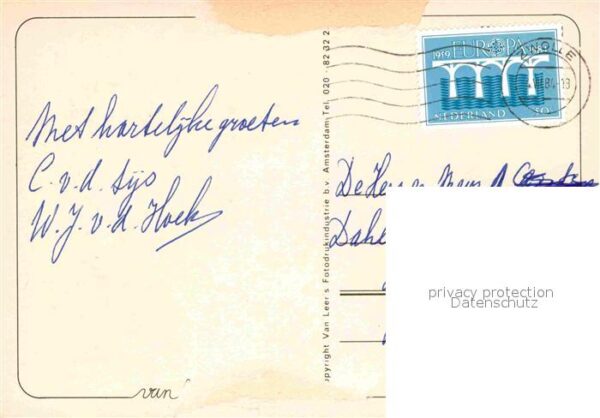 Met hartelijke groeten
C. v. d. Sijs
W. J. v. d. Hoek
van
opyright Van Leer's Fotodrukindustrie b.v. Amsterdam Tel. 020 - 82 32 2
1959 EUROPA
NEDERLAND 50
ZWOLLE
84-13
De Heer en Mevr. A
Dahl
privacy protection
Datenschutz